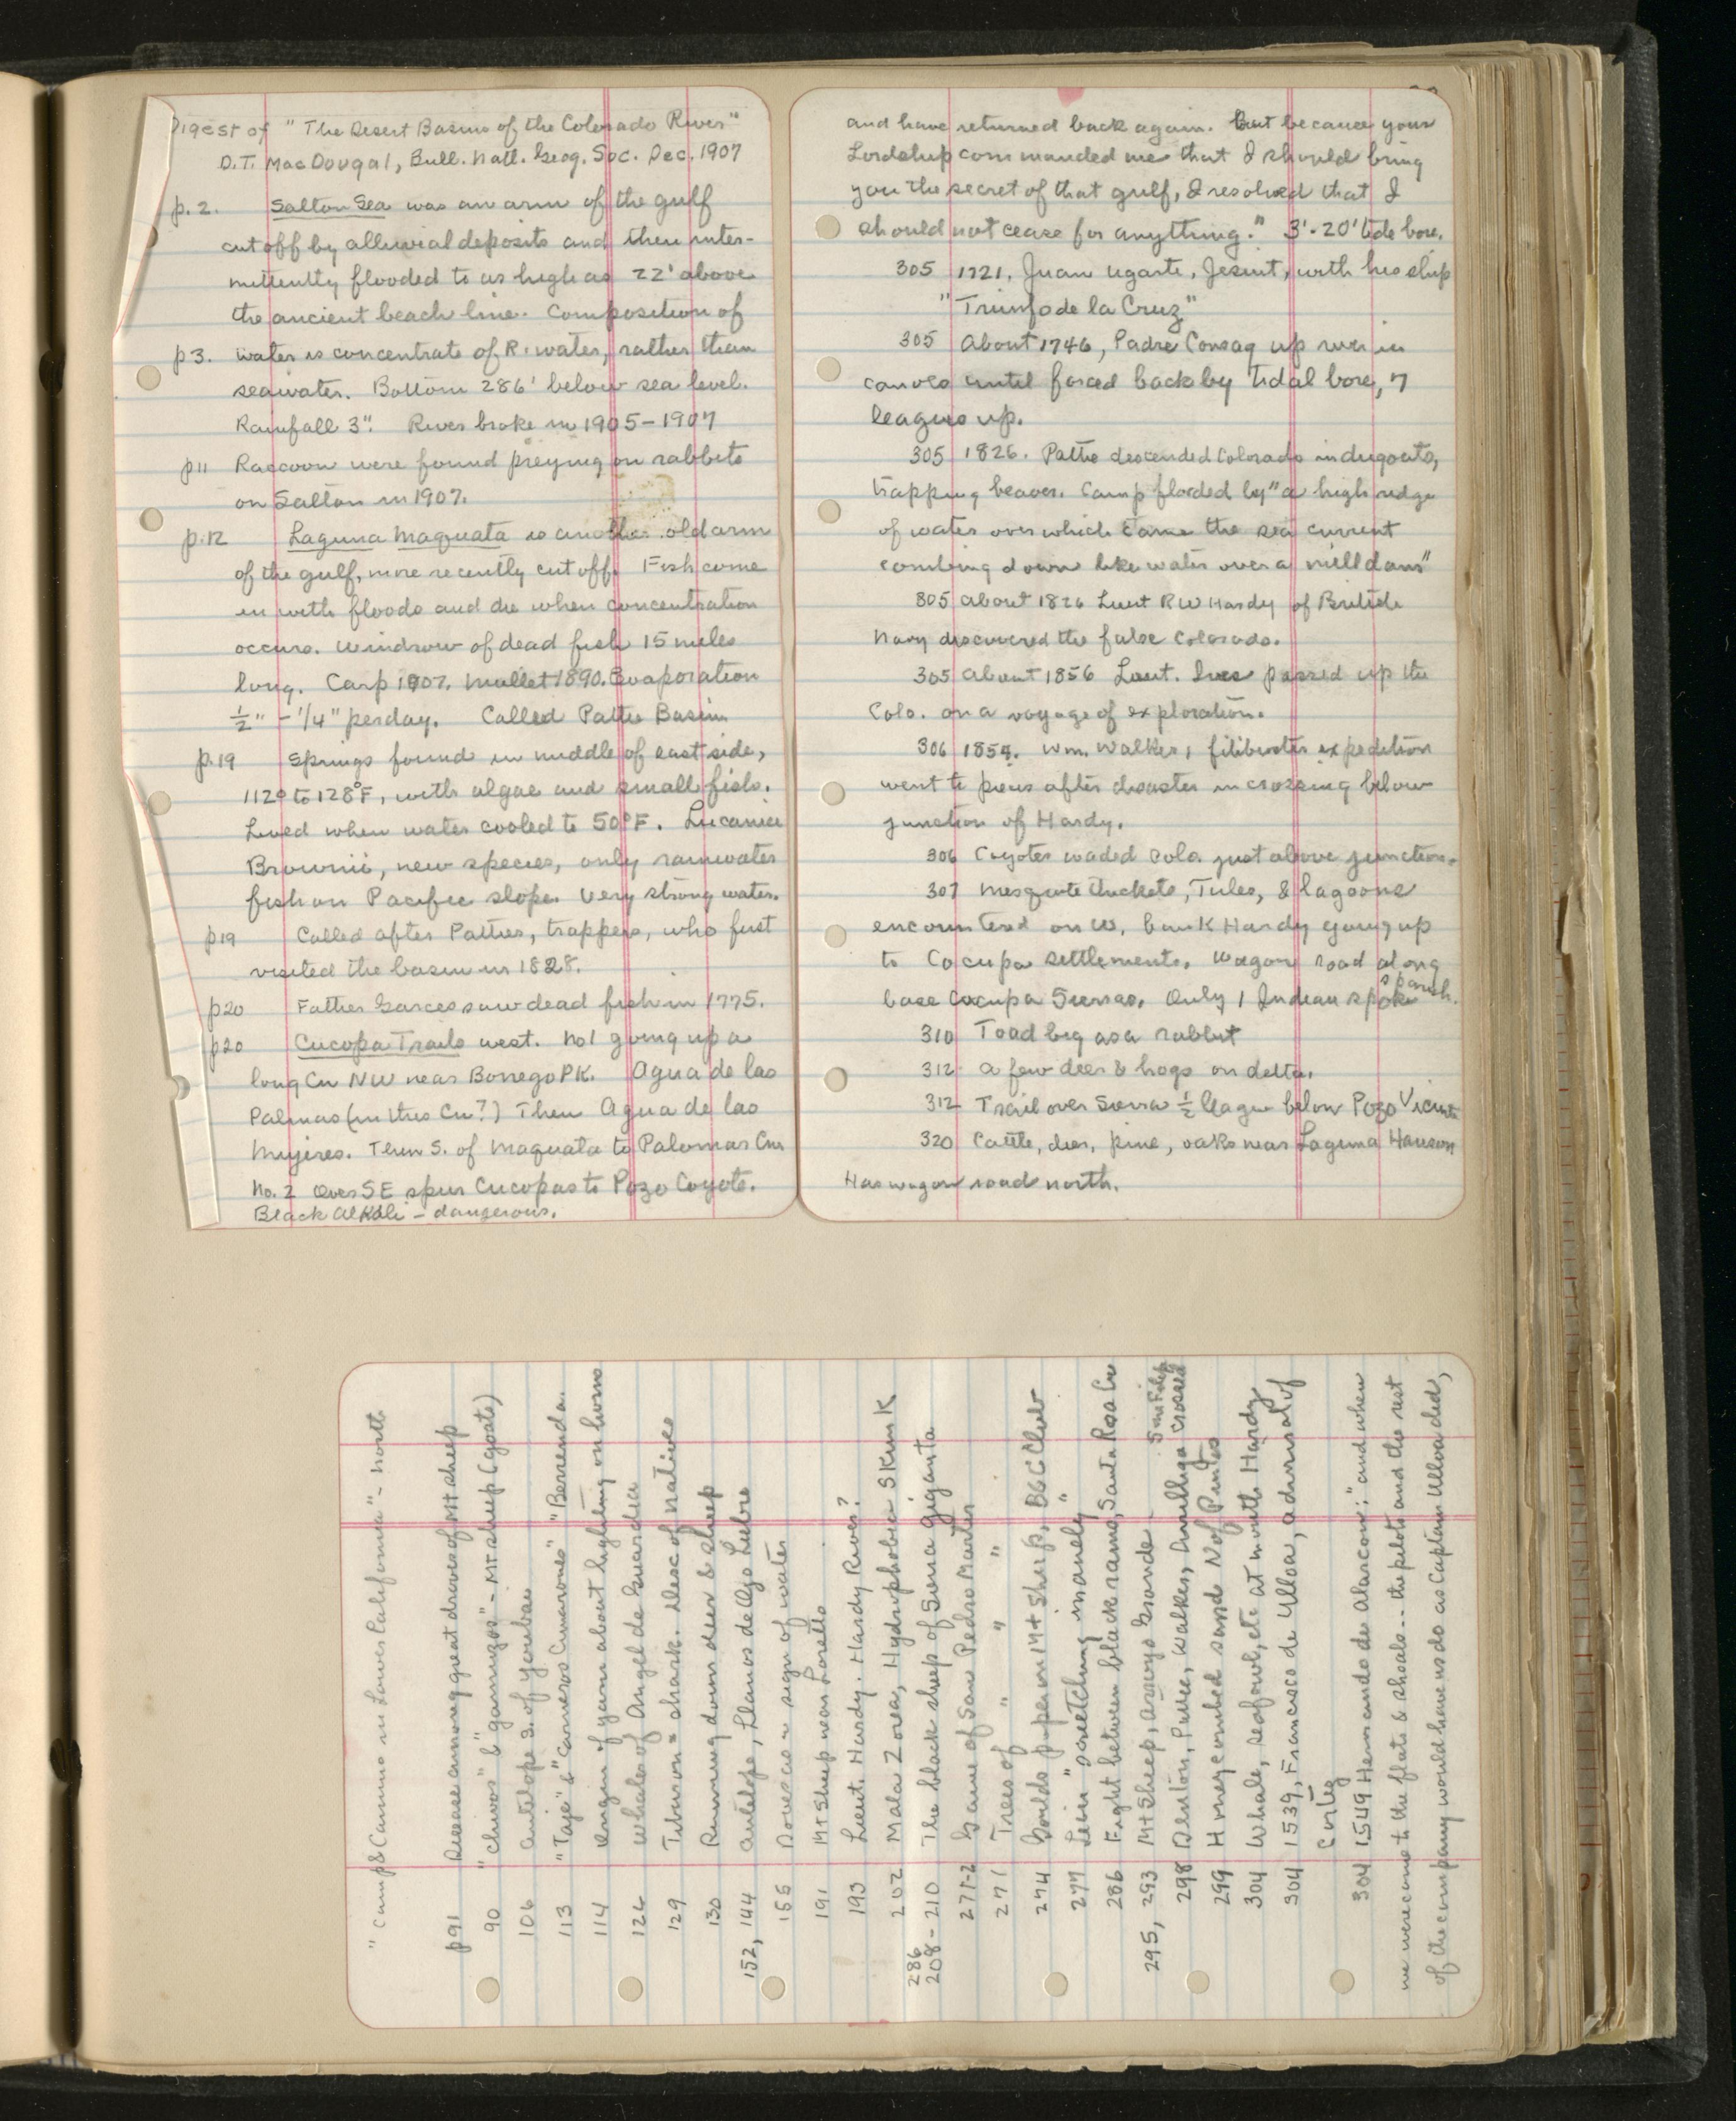 Digest of "The Desert Basins of the Colorado River"
D.T. MacDougal, Bull. Natl. Geog. Soc. Dec. 1907
p. 2. Salton Sea was an arm of the gulf
cut off by alluvial deposits and then inter-
mittently flooded to as high as 22' above
the ancient beach line. Composition of
p3. water is concentrate of R. water, rather than
seawater. Bottom 286' below sea level.
Rainfall 3". River broke in 1905-1907
p11 Raccoon were found preying on rabbits
on Salton in 1907.
p.12 Laguna Maquata is another old arm
of the gulf, more recently cut off. Fish come
in with floods and die when concentration
occurs. Windrow of dead fish 15 miles
long. Carp 1907. Mullet 1890. Evaporation
½" - 1/4" per day. Called Pattie Basin
p.19 Springs found in middle of east side,
112° to 128°F, with algae and small fish.
Lived when water cooled to 50°F. Lucania
Brownii, new species, only rainwater
fish on Pacific slope. Very strong water.
p19 Called after Patties, trappers, who first
visited the basin in 1828.
p20 Father Garces saw dead fish in 1775.
p20 Cucopa Trails west. No 1 going up a
long Cn NW near Borrego PK. Agua de las
Palmas (in this Cn?) Then Agua de las
Mujeres. Then S. of Maquata to Palomar Cn
No. 2 Over SE spur Cucopas to Pozo Coyote.
Black Alkali - dangerous.
and have returned back again. But because your
Lordship commanded me that I should bring
you the secret of that gulf, I resolved that I
should not cease for anything." 3'-20' tide bore.
305 1721. Juan Ugarte, Jesuit, with his ship
"Triunfo de la Cruz"
305 About 1746, Padre Consag up river in
canoes until forced back by tidal bore, 7
leagues up.
305 1826. Pattie descended Colorado in dugouts,
trapping beaver. Camp flooded by "a high ridge
of water over which came the sea current
combing down like water over a mill dam"
305 About 1826 Lieut RW Hardy of British
Navy discovered the false Colorado.
305 About 1856 Lieut. Ives passed up the
Colo. on a voyage of exploration.
306 1854. Wm. Walker, filibuster expedition
went to pieces after disaster in crossing below
junction of Hardy.
306 Coyotes waded Colo. just above junction.
307 Mesquite thickets, Tules, & lagoons
encountered on W. bank Hardy going up
to Cocupa settlements. Wagon road along
base Cocupa Sierras. Only 1 Indian spoke Spanish.
310 Toad big as a rabbit
312 a few deer & hogs on delta.
312 Trail over Sierra ½ league below Pozo Vicente
320 Cattle, deer, pine, oaks near Laguna Hanson
Has wagon road north.
"Camp & Camino in Lower California" - North
p91 Disease among great droves of Mt sheep
90 "chivos" & "gamuzos" - Mt sheep (goats)
106 Antelope S. of Yubay
113 "Taje" & "Carneros Cimarones" "Berrenda.
114 Origin of yarn about lighting on horns
126 Whales of Angel de Guardia
129 Tiburon = shark. Desc of natives
130 Running down deer & sheep
152, 144 Antelope, Llanos de Ojo Liebre
155 Doves as a sign of water
191 Mt Sheep near Loretto
193 Lieut. Hardy. Hardy River?
202 Mala Zorea, Hydrophobia Skunk
286
208-210 The black sheep of Sierra Giganta
271-2 Game of San Pedro Martir
271 Trees of " " "
274 Goulds paper on Mt Sheep, B&C Club
277 Lion "screetching insanely"
286 Fight between black rams, Santa Rosa Cn
295, 293 Mt Sheep, Arroyo Grande - San Felipe
298 Denton, Puree, Walker, crossed
299 Honeycombed sands N of Puntas
304 Whale, seafowl, etc at mouth Hardy
304 1539, Francisco de Ulloa, admiral of
Cortez
304 1549 Hernando de Alarcon: "and when
we were come to the flats & shoals -- the pilots and the rest
of the company would have us do as Captain Ulloa did,